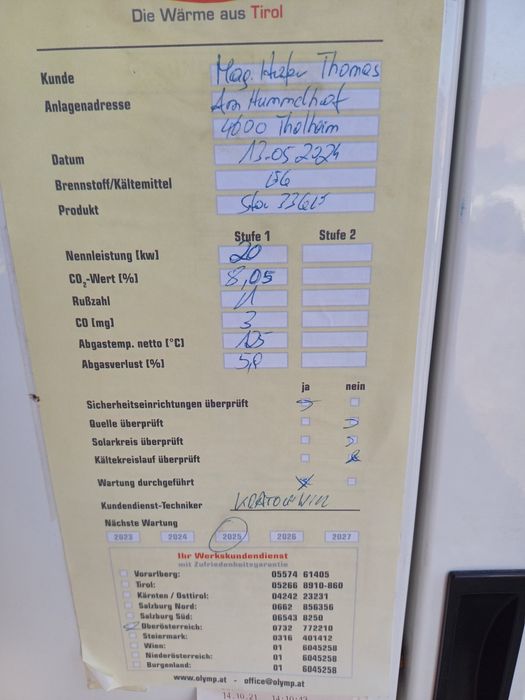 Die Wärme aus Tirol
Kunde Mag. Thomas
Anlagenadresse Am Hummelhof
4600 Thalheim
Datum 13.05.2024
Brennstoff/Kältemittel
Produkt
Stufe 1 Stufe 2
Nennleistung [kw] 20
CO₂-Wert [%] 8,05
Rußzahl
CO [mg] 3
Abgastemp. netto [°C]
Abgasverlust [%] 5,8
ja nein
Sicherheitseinrichtungen überprüft
Quelle überprüft
Solarkreis überprüft
Kältekreislauf überprüft
Wartung durchgeführt
Kundendienst-Techniker
Nächste Wartung
2023 2024 2025 2026 2027
Ihr Werkskundendienst
mit Zufriedenheitsgarantie
Vorarlberg: 05574 61405
Tirol: 05266 8910-860
Kärnten / Osttirol: 04242 23231
Salzburg Nord: 0662 856356
Salzburg Süd: 06543 8250
Oberösterreich: 0732 772210
Steiermark: 0316 401412
Wien: 01 6045258
Niederösterreich: 01 6045258
Burgenland: 01 6045258
www.olymp.at - office@olymp.at